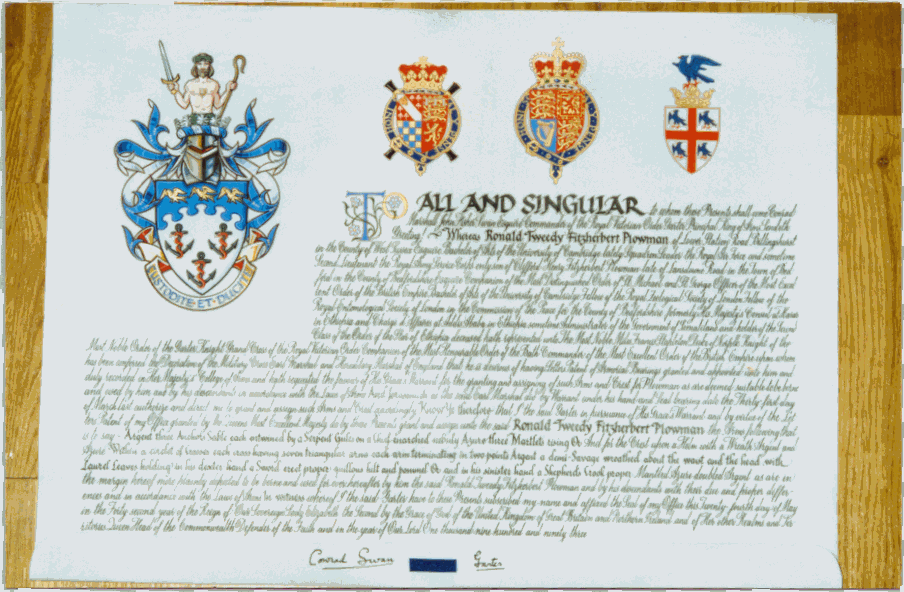 CUSTODITE ET DUCITE
TO ALL AND SINGULAR to whom these Presents shall come Conrad
Marshall John Fisher Swan Esquire Commander of the Royal Victorian Order Garter Principal King of Arms Sendeth
Greeting Whereas Ronald Tweedy Fitzherbert Plowman of
in the County of West Sussex Esquire Bachelor of Arts of the University of Cambridge Squadron Leader the Royal Air Force and sometime
Second Lieutenant the Royal Army Service Corps only son of Clifford Henry Fitzherbert Plowman late of Lansdowne Road in the Town of Bed
ford in the County of Bedfordshire Esquire Companion of the Most Distinguished Order of St. Michael and St. George Officer of the Most Excel
lent Order of the British Empire Bachelor of Arts of the University of Cambridge Fellow of the Royal Geological Society of London Fellow of the
Royal Entomological Society of London in the Commission of the Peace for the County of Bedfordshire formerly His Majesty's Consul at Harar
in Ethiopia and Chargé d'Affaires at Addis Ababa in Ethiopia sometime Administrator of the Government of Somaliland and holder of the Second
Class of the Order of the Star of Ethiopia deceased hath represented unto The Most Noble Miles Francis Stapleton Duke of Norfolk Knight of the
Most Noble Order of the Garter Knight Grand Cross of the Royal Victorian Order Companion of the Most Honourable Order of the Bath Commander of the Most Excellent Order of the British Empire upon whom
has been conferred the Decoration of the Military Cross Earl Marshal and Hereditary Marshal of England that he is desirous of having Letters Patent of Armorial Bearings granted and assigned unto him and
duly recorded in Her Majesty's College of Arms and hath requested the favour of His Grace's Warrant for the granting and assigning of such Arms and Crest for Plowman as are deemed suitable to be borne
and used by him and by his descendants in accordance with the Laws of Arms And forasmuch as the said Earl Marshal did by Warrant under his hand and Seal bearing date the Thirty first day
of March last authorise and direct me to grant and assign such Arms and Crest accordingly Know Ye therefore that I the said Garter in pursuance of His Grace's Warrant and by virtue of the Let
ters Patent of my Office granted by the Queens Most Excellent Majesty do by these Presents grant and assign unto the said Ronald Tweedy Fitzherbert Plowman the Arms following that
is to say Argent three Anchors Sable each entwined by a Serpent Gules on a Chief enarched nebuly Azure three Martlets rising Or And for the Crest upon a Helm with a Wreath Argent and
Azure Within a circlet of crosses each cross having seven triangular arms each arm terminating in two points Argent a demi Savage wreathed about the waist and the head with
Laurel Leaves holding in his dexter hand a Sword erect proper quillons hilt and pommel Or and in his sinister hand a Shepherds Crook proper Mantled Azure doubled Argent as are in
the margin hereof more plainly depicted to be borne and used for ever hereafter by him the said Ronald Tweedy Fitzherbert Plowman and by his descendants with their due and proper differ
ences and in accordance with the Laws of Arms In witness whereof I the said Garter have to these Presents subscribed my name and affixed the Seal of my Office this Twenty fourth day of May
in the Forty second year of the Reign of Our Sovereign Lady Elizabeth the Second by the Grace of God of the United Kingdom of Great Britain and Northern Ireland and of Her other Realms and Ter
ritories Queen Head of the Commonwealth Defender of the Faith and in the year of Our Lord One thousand nine hundred and ninety three
Conrad Swan Garter